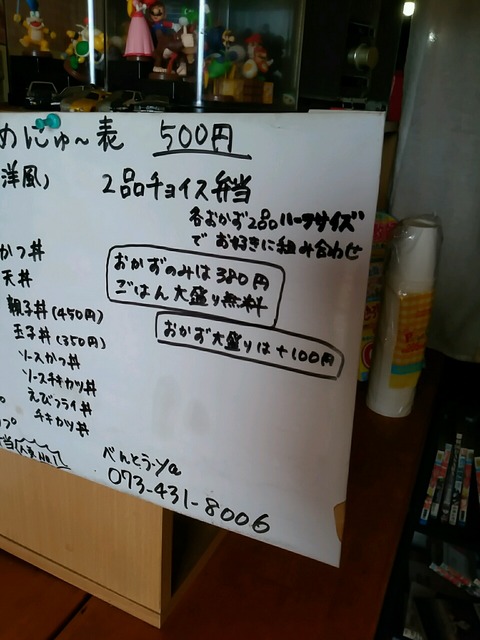 めにゅ〜表 500円
(洋風)
2品チョイス弁当
各おかず2品ハーフサイズ
で お好きに組み合わせ
かつ丼
天丼
親子丼(450円)
玉子丼(350円)
ソースかつ丼
ソースチキカツ丼
えびフライ丼
チキカツ丼
おかずのみは380円
ごはん大盛り無料
おかず大盛りは+100円
べんとう・Ya
073-431-8006